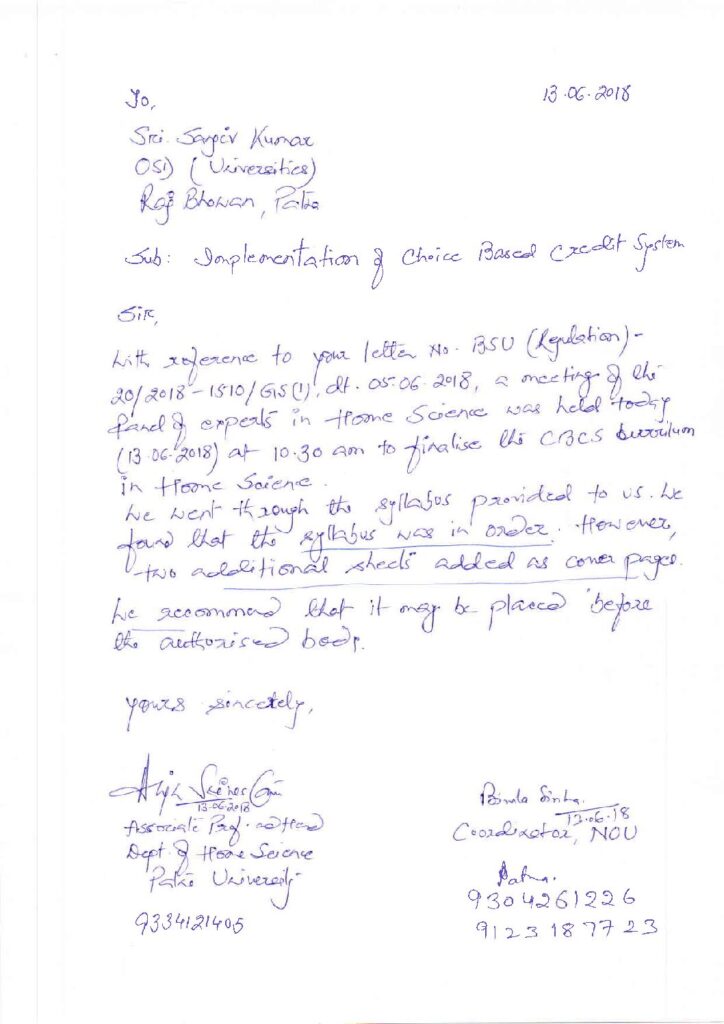 13.06.2018
To,
Sri. Sanjiv Kumar
OSD (Universities)
Raj Bhowan, Patna
Sub: Implementation of Choice Based Credit System
Sir,
With reference to your letter No. BSU (Regulation)-
20/2018-1510/GS(1), dt. 05.06.2018, a meeting of the
Panel of experts in Home Science was held today
(13.06.2018) at 10.30 am to finalise the CBCS
in Home Science.
We went through the syllabus provided to us. We
found that the syllabus was in order. However,
two additional sheets added as cover pages.
We recommend that it may be placed before
the authorised body.
Yours sincerely,
13.06.2018
Associate Prof. and Head
Dept. of Home Science
Patna University
9334121405
Bimla Sinha.
13.06.18
Coordinator, NOU
Patna.
9304261226
9123187723